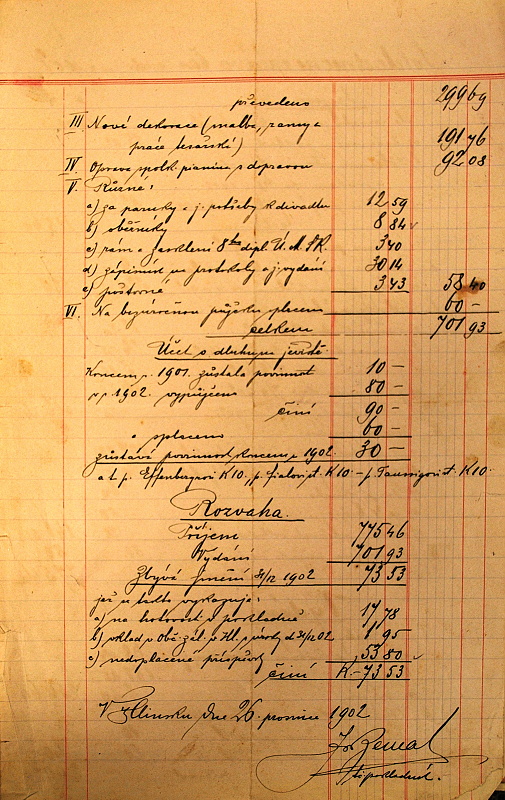 převedeno 299 69
III Nové dekorace (malba, rámy a
práce tesařské) 191 76
IV. Oprava spolk. pianina s dopravou 92 08
V. Různé:
a) za paruky a j. potřeby k divadlu 12 59
b) oběžníky 8 84
c) rám a zasklení dipl. Ú. M. Šk. 3 40
d) zápisník na protokoly a j. vydání 30 14
e) poštovné 3 43 58 40
VI. Na bezúročnou půjčku splaceno 60 –
celkem 701 93
Účet s dluhem jeviště.
Koncem r. 1901. zůstala povinnost 10 –
v r. 1902. vypůjčeno 80 –
činí 90 –
a splaceno 60 –
zůstává povinnost koncem r. 1902. 30 –
a t. p. Effenbergrovi K 10., p. Fialovi st. K 10 – p. Taussigovi st. K 10.
Rozvaha.
Příjem 775 46
Vydání 701 93
Zbývá jmění 31/12 1902 73 53
jež se takto vykazuje:
a) na hotovosti v pokladně 17 78
b) vklad v Obč. zál. v Hl. s úroky d 31/12 02 1 95
c) nedoplacené příspěvky 53 80
činí K – 73 53
V Hlinsku dne 26. prosince 1902
t. č. pokladník.